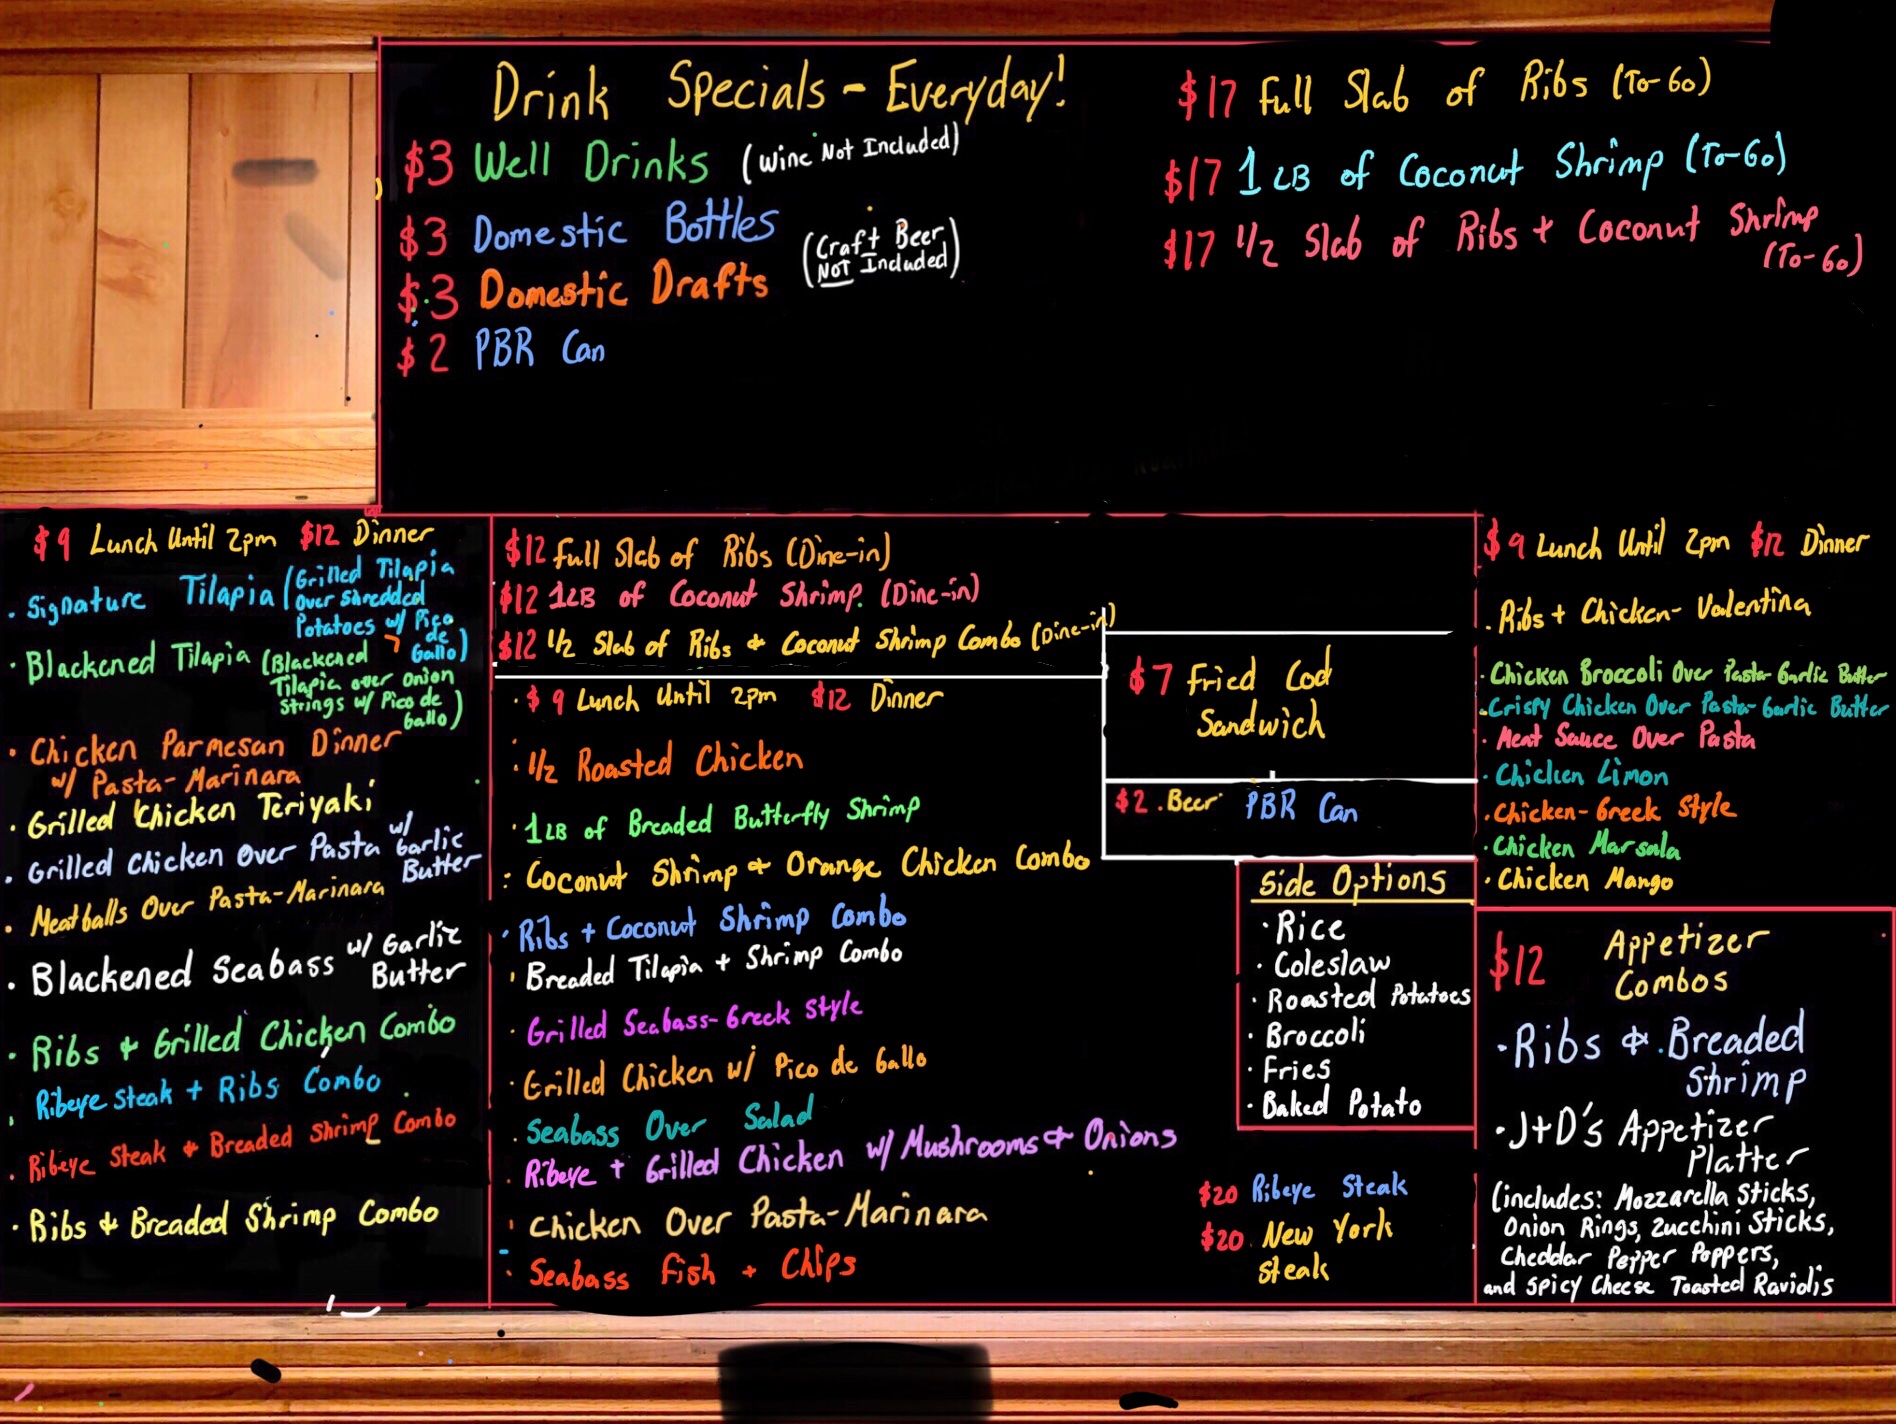 Drink Specials - Everyday!
$3 Well Drinks (Wine Not Included)
$3 Domestic Bottles
(Craft Beer
NOT Included)
$3 Domestic Drafts
$2 PBR Can
$17 Full Slab of Ribs (To-Go)
$17 1 LB of Coconut Shrimp (To-Go)
$17 1/2 Slab of Ribs + Coconut Shrimp
(To-Go)
$9 Lunch Until 2pm $12 Dinner
· Signature Tilapia (Grilled Tilapia
over shredded
Potatoes w/ Pico
de
Gallo)
· Blackened Tilapia (Blackened
Tilapia over onion
strings w/ Pico de
Gallo)
· Chicken Parmesan Dinner
w/ Pasta-Marinara
· Grilled Chicken Teriyaki
· Grilled Chicken Over Pasta w/
Garlic
Butter
· Meatballs Over Pasta-Marinara
· Blackened Seabass w/ Garlic
Butter
· Ribs & Grilled Chicken Combo
· Ribeye Steak + Ribs Combo
· Ribeye Steak & Breaded Shrimp Combo
· Ribs & Breaded Shrimp Combo
$12 Full Slab of Ribs (Dine-in)
$12 1LB of Coconut Shrimp. (Dine-in)
$12 1/2 Slab of Ribs & Coconut Shrimp Combo (Dine-in)
· $9 Lunch Until 2pm $12 Dinner
· 1/2 Roasted Chicken
· 1LB of Breaded Butterfly Shrimp
· Coconut Shrimp & Orange Chicken Combo
· Ribs + Coconut Shrimp Combo
· Breaded Tilapia + Shrimp Combo
· Grilled Seabass-Greek Style
· Grilled Chicken w/ Pico de Gallo
· Seabass Over Salad
· Ribeye + Grilled Chicken w/ Mushrooms & Onions
· Chicken Over Pasta-Marinara
· Seabass Fish + Chips
$7 Fried Cod
Sandwich
$2 Beer PBR Can
Side Options
· Rice
· Coleslaw
· Roasted Potatoes
· Broccoli
· Fries
· Baked Potato
$20 Ribeye Steak
$20 New York
Steak
$9 Lunch Until 2pm $12 Dinner
· Ribs + Chicken- Valentina
· Chicken Broccoli Over Pasta-Garlic Butter
· Crispy Chicken Over Pasta-Garlic Butter
· Meat Sauce Over Pasta
· Chicken Limon
· Chicken-Greek Style
· Chicken Marsala
· Chicken Mango
$12 Appetizer
Combos
· Ribs & Breaded
Shrimp
· J+D's Appetizer
Platter
(includes: Mozzarella Sticks,
Onion Rings, Zucchini Sticks,
Cheddar Pepper Poppers,
and Spicy Cheese Toasted Raviolis